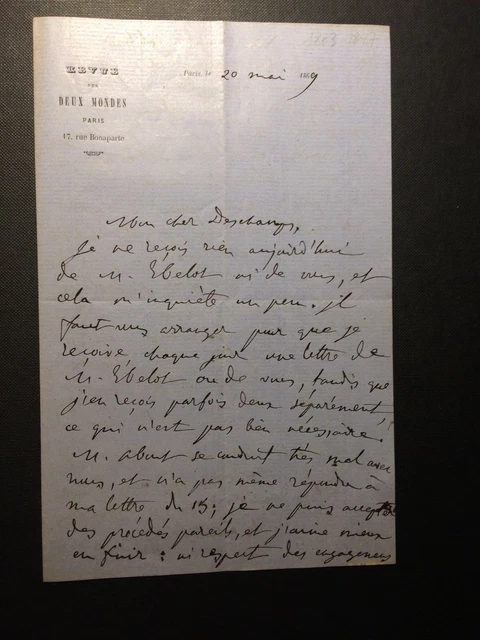 REVUE
DES
DEUX MONDES
PARIS
17, rue Bonaparte
Paris, le 20 mai 1869
Mon cher Deschamps,
je ne reçois rien aujourd'hui
de M. Ebelot ni de vous, et
cela m'inquiète un peu. il
faut vous arranger pour que je
reçoive chaque jour une lettre de
M. Ebelot ou de vous, tandis que
j'en reçois parfois deux séparément
ce qui n'est pas bien nécessaire.
M. About se conduit très mal avec
nous, et n'a pas même répondu à
ma lettre du 15; je ne puis accepter
des procédés pareils, et j'aime mieux
en finir: ni respect des engagements